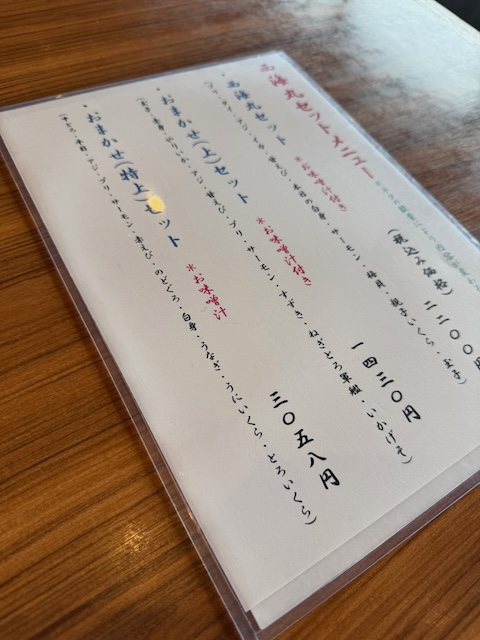 海丸セットメニュー
により内容が
(税込み価格)
海丸セット ※お味噌汁付き 二二〇〇円
甘えび・本日の白身・サーモン・梅貝・親子いくら・玉子)
おまかせ(上)セット ※お味噌汁付き 一四三〇円
白身・やりいか・アジ・甘えび・ブリ・サーモン・すずき・ねぎとろ軍艦・いかげそ)
おまかせ(特上)セット ※お味噌汁 三〇五八円
アジ・ブリ・サーモン・赤えび・のどぐろ・白身・うなぎ・うにいくら・とろいくら)